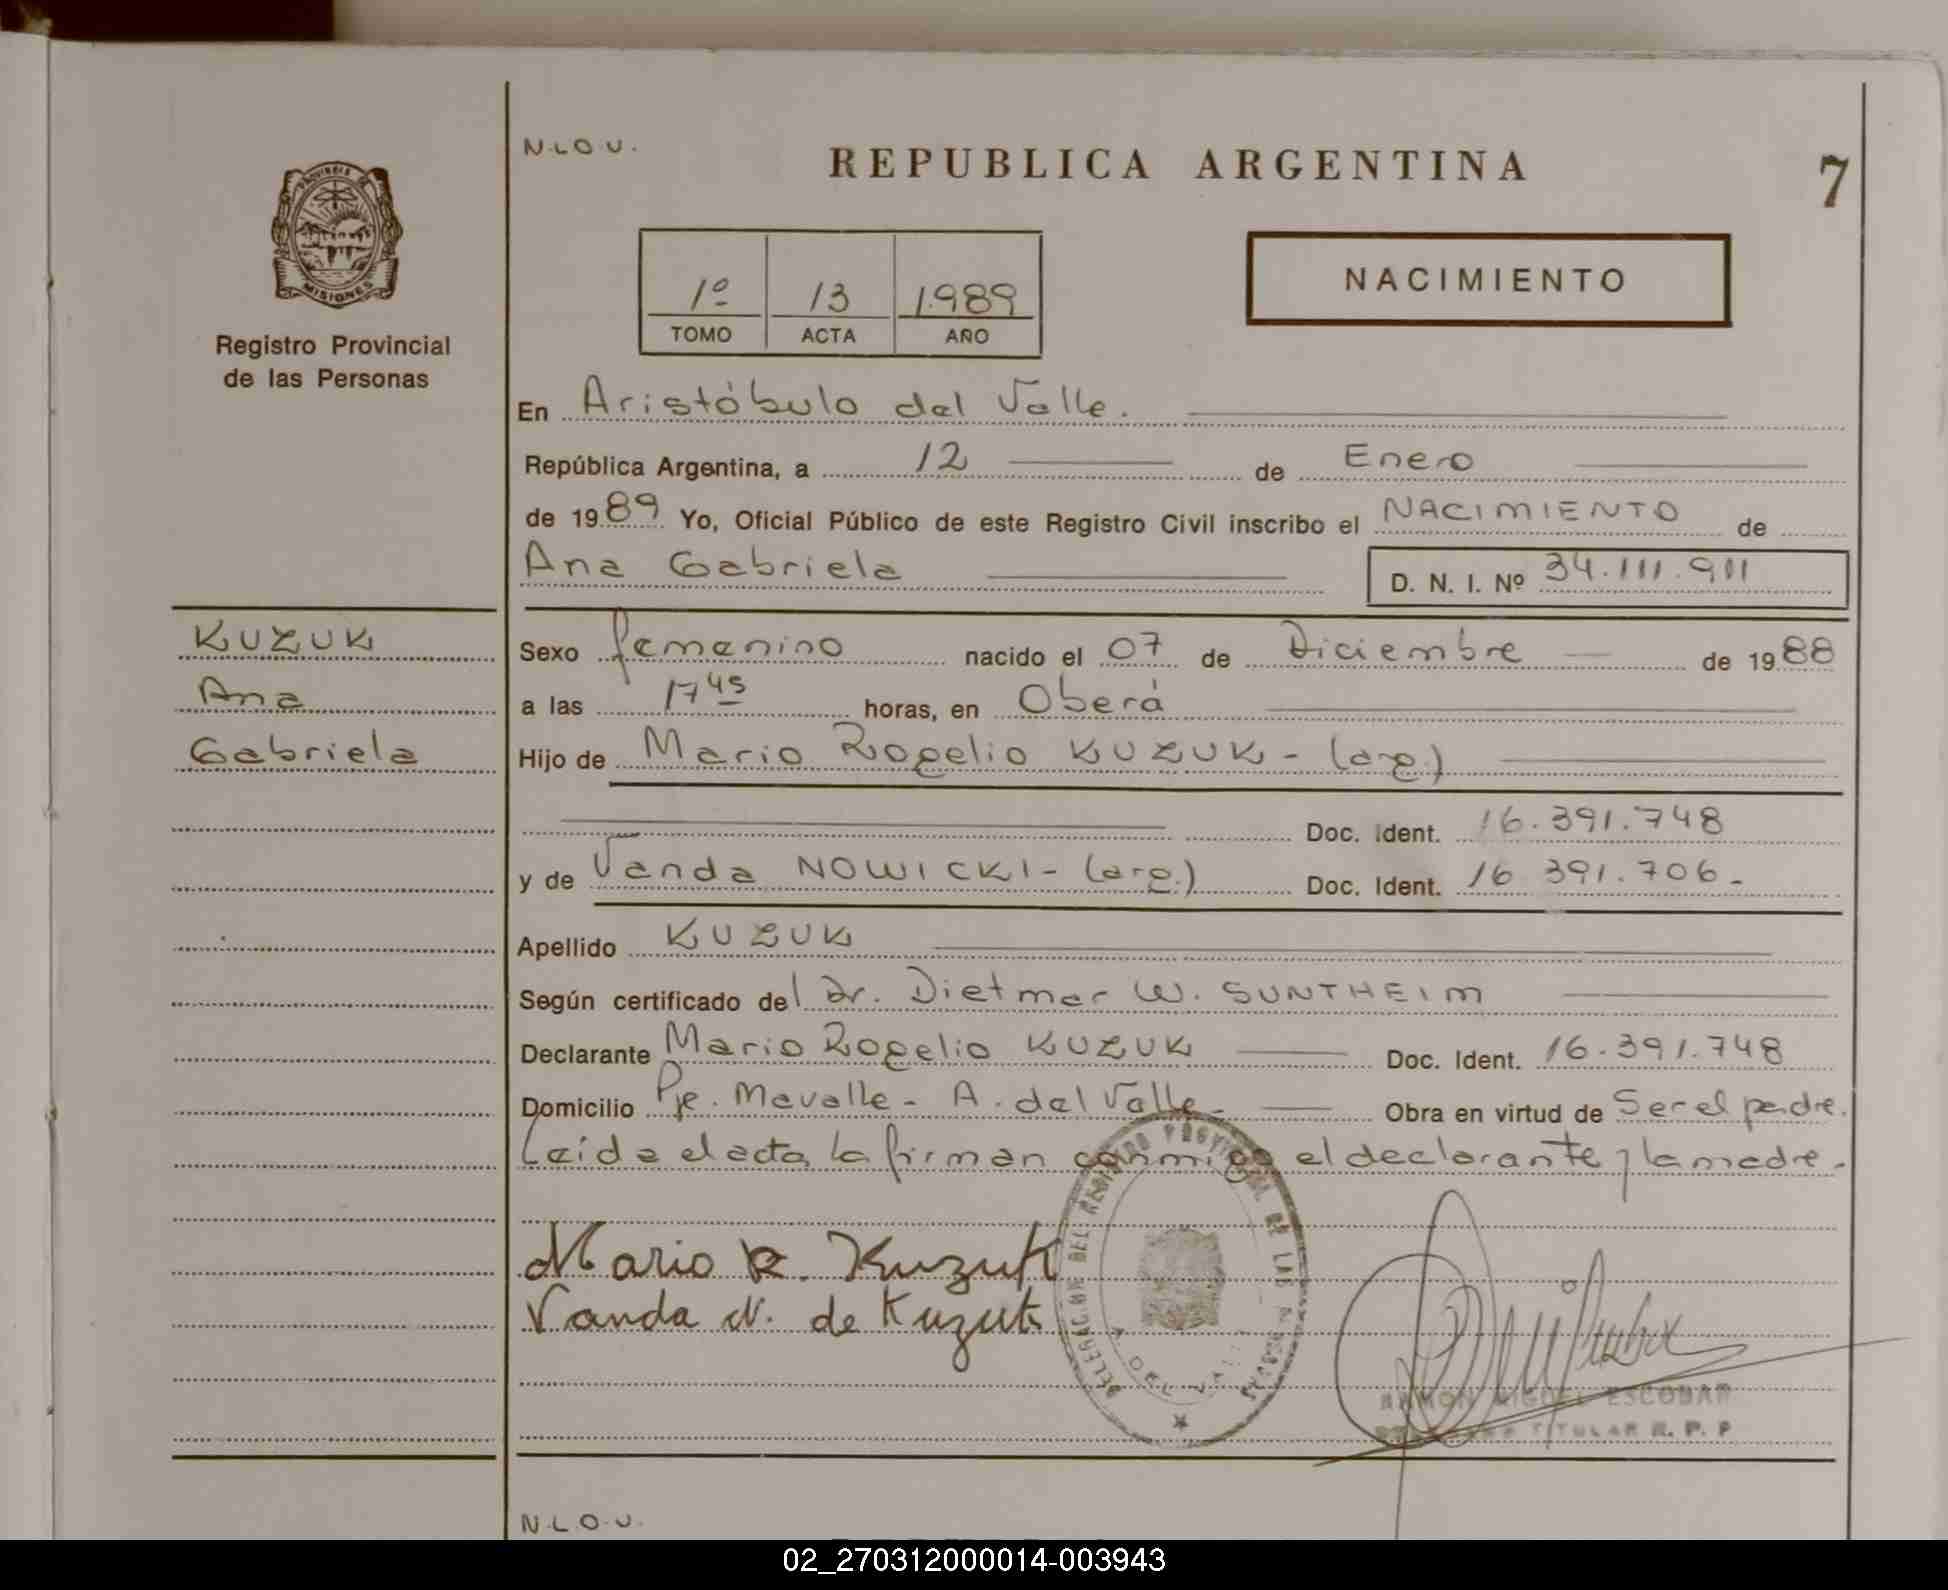 N.L.O.U.
REPUBLICA ARGENTINA
7
PROVINCIA DE
MISIONES
Registro Provincial
de las Personas
1º 13 1.989
TOMO ACTA AÑO
NACIMIENTO
En Aristóbulo del Valle.
República Argentina, a 12 de Enero
de 1989 Yo, Oficial Público de este Registro Civil inscribo el NACIMIENTO de
Ana Gabriela D. N. I. Nº 34.111.911
KUZUK
Ana
Gabriela
Sexo femenino nacido el 07 de Diciembre de 1988
a las 17 45 horas, en Oberá
Hijo de Mario Rogelio KUZUK - (arg.)
Doc. Ident. 16.391.748
y de Vanda NOWICKI - (arg.) Doc. Ident. 16 391.706.-
Apellido KUZUK
Según certificado del Dr. Dietmar W. SUNTHEIM
Declarante Mario Rogelio KUZUK Doc. Ident. 16.391.748
Domicilio Pje. Mavalle - A. del Valle - Obra en virtud de Ser el padre.
Leída el acta, la firman conmigo el declarante y la madre.
Mario R. Kuzuk
Vanda N. de Kuzuk
DELEGACION DEL REGISTRO PROVINCIAL DE LAS PERSONAS
A. DEL VALLE
RAMON MIGUEL ESCOBAR
TITULAR R. P. P
N.L.O.U.
02_270312000014-003943